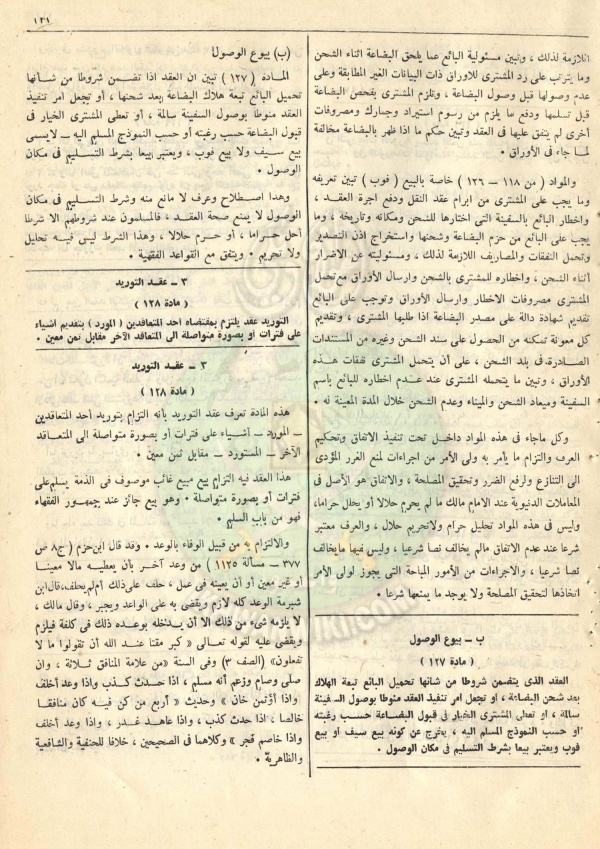 ١٣١
اللازمة لذلك ، وتبين مسئولية البائع عما يلحق البضاعة اثناء الشحن
وما يترتب على رد المشترى للاوراق ذات البيانات الغير المطابقة وعلى
عدم وصولها قبل وصول البضاعة ، وتلزم المشترى بفحص البضاعة
قبل تسلمها ودفع ما يلزم من رسوم استيراد وجمارك ومصروفات
أخرى لم ينفق عليها فى العقد وتبين حكم ما اذا ظهر بالبضاعة مخالفة
لما جاء فى الأوراق .
والمواد ( من ١١٨ — ١٢٦ ) خاصة بالبيع ( فوب ) تبين تعريفه
وما يجب على المشترى من ابرام عقد النقل ودفع اجرة العقد ،
واخطار البائع بالسفينة التى اختارها للشحن ومكانه وتاريخه ، وما
يجب على البائع من حزم البضاعة وشحنها واستخراج اذن التصدير
وتحمل النفقات والمصاريف اللازمة لذلك ، ومسئوليته عن الاضرار
أثناء الشحن ، واخطاره للمشترى بالشحن وارسال الأوراق مع تحمل
المشترى مصروفات الاخطار وارسال الأوراق وتوجب على البائع
تقديم شهادة دالة على مصدر البضاعة اذا طلبها المشترى ، وتقديم
كل معونة تمكنه من الحصول على سند الشحن وغيره من المستندات
الصادرة فى بلد الشحن ، على أن يتحمل المشترى نفقات هذه
الأوراق ، وتبين ما يتحمله المشترى عند عدم اخطاره للبائع باسم
السفينة وميعاد الشحن والميناء وعدم الشحن خلال المدة المعينة له .
وكل ماجاء فى هذه المواد داخل تحت تنفيذ الاتفاق وتحكيم
العرف والتزام ما يأمر به ولى الأمر من اجراءات لمنع الغرر المؤدى
الى التنازع ولرفع الضرر وتحقيق المصلحة ، والاتفاق هو الأصل فى
المعاملات الدنيوية عند الامام مالك ما لم يحرم حلالا أو يحلل حراما،
وليس فى هذه المواد تحليل حرام ولاتحريم حلال ، والعرف معتبر
شرعا عند عدم الاتفاق مالم يخالف نصا شرعيا ، وليس فيها مايخالف
نصا شرعيا ، والاجراءات من الأمور المباحة التى يجوز لولى الأمر
اتخاذها لتحقيق المصلحة ولا يوجد ما يمنعها شرعا .
ب ـ بيوع الوصول
( مادة ١٢٧ )
العقد الذى يتضمن شروطا من شانها تحميل البائع تبعة الهلاك
بعد شحن البضاعة ، أو تجعل أمر تنفيذ العقد منوطا بوصول السفينة
سالمة ، أو تعطى المشترى الخيار فى قبول البضاعة حسب رغبته
أو حسب النموذج المسلم اليه ، يخرج عن كونه بيع سيف أو بيع
فوب ويعتبر بيعا بشرط التسليم فى مكان الوصول .
(ب) بيوع الوصول:
المادة ( ١٢٧ ) تبين ان العقد اذا تضمن شروطا من شأنها
تحميل البائع تبعة هلاك البضاعة بعد شحنها ، أو تجعل أمر تنفيذ
العقد منوطا بوصول السفينة سالمة ، أو تعطى المشترى الخيار فى
قبول البضاعة حسب رغبته أو حسب النموذج المسلم اليه — لايسمى
بيع سيف ولا بيع فوب ، ويعتبر بيعا بشرط التسليم فى مكان
الوصول .
وهذا اصطلاح وعرف لا مانع منه وشرط التسليم فى مكان
الوصول لا يمنع صحة العقد ، فالمسلمون عند شروطهم الا شرطا
أحل حراما ، أو حرم حلالا ، وهذا الشرط ليس فيه تحليل
ولا تحريم . ويتفق مع القواعد الفقهية .
٣ ـ عقد التوريد
( مادة ١٢٨ )
التوريد عقد يلتزم بمقتضاه احد المتعاقدين ( المورد ) بتقديم أشياء
على فترات أو بصورة متواصلة الى المتعاقد الآخر مقابل ثمن معين .
٣ ـ عقد التوريد
( مادة ١٢٨ )
هذه المادة تعرف عقد التوريد بأنه التزام بتوريد أحد المتعاقدين
— المورد — أشياء على فترات أو بصورة متواصلة الى المتعاقد
الآخر — المستورد — مقابل ثمن معين .
هذا العقد فيه التزام بيع مبيع غائب موصوف فى الذمة يسلم على
فترات أو بصورة متواصلة . وهو بيع جائز عند جمهور الفقهاء
فهو من باب السلم .
والالتزام به من قبيل الوفاء بالوعد . وقد قال ابن حزم ( ج٨ ص
٣٧٧ — مسألة ١١٢٥ ) من وعد آخر بأن يعطيه مالا معينا
أو غير معين أو أن يعينه فى عمل ، حلف على ذلك أم لم يحلف، قال ابن
شبرمة الوعد كله لازم ويقضى به على الواعد ويجبر ، وقال مالك ،
لا يلزمه شىء من ذلك الا أن يدخله بوعده ذلك فى كلفة فيلزم
ويقضى عليه لقوله تعالى « كبر مقتا عند الله أن تقولوا ما لا
تفعلون» (الصف ٣) وفى السنة «من علامة المنافق ثلاثة ، وان
صلى وصام وزعم أنه مسلم ، اذا حدث كذب واذا وعد أخلف
واذا اؤتمن خان » وحديث « أربع من كن فيه كان منافقا
خالصا ، اذا حدث كذب ، واذا عاهد غدر ، واذا وعد أخلف
واذا خاصم فجر » وكلاهما فى الصحيحين ، خلافا للحنفية والشافعية
والظاهرية .